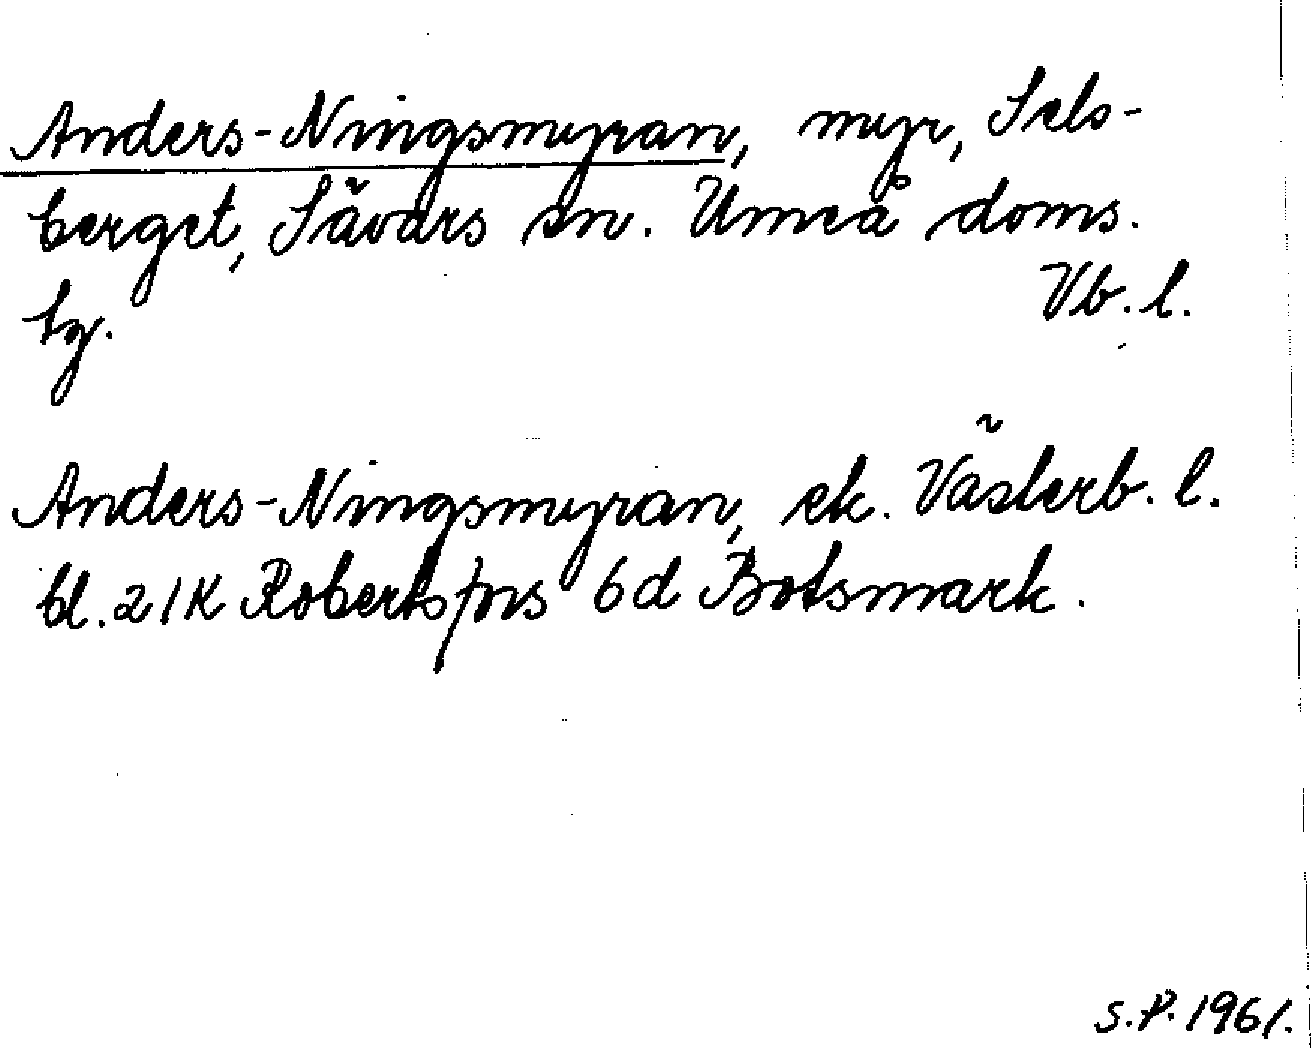 Anders-Ningsmyran, myr, Sels-
berget, Sävars sn. Umeå doms.
sg. Vb. l.
Anders-Ningsmyran, ek. Västerb. l.
bl. 21K Robertsfors 6d Botsmark.
S.P. 1961.